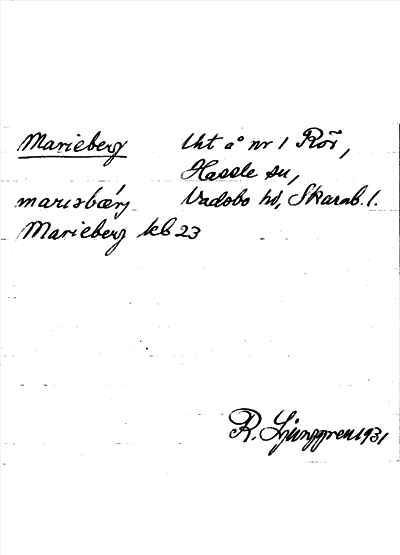 Marieberg Uht å nr 1 Rör,
Hassle sn,
marɪəbær̨j Vadsbo hd, Skarab. l.
Marieberg kb 23
R. Ljunggren 1931